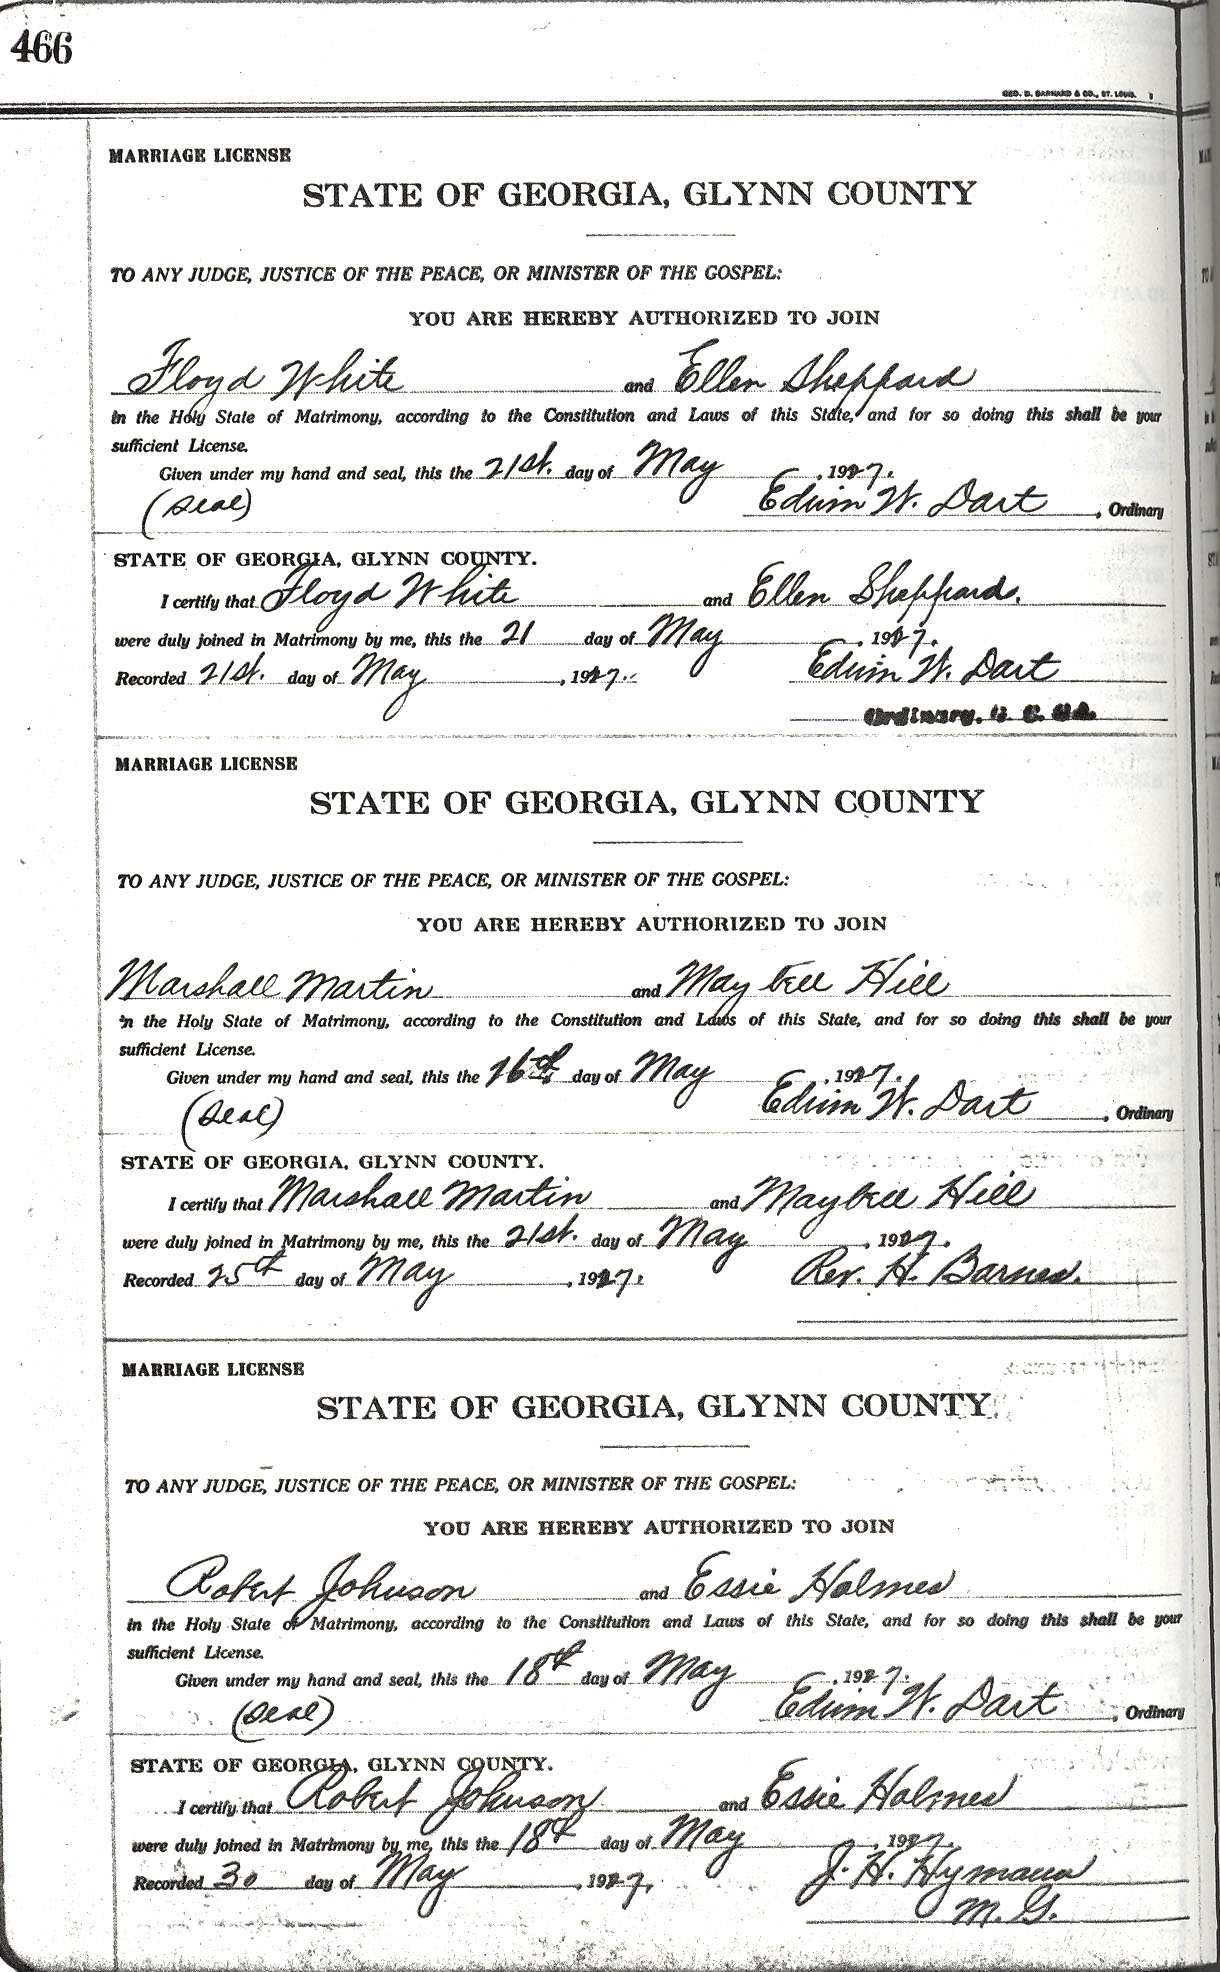 466
GEO. D. BARNARD & CO., ST. LOUIS.
MARRIAGE LICENSE
STATE OF GEORGIA, GLYNN COUNTY
TO ANY JUDGE, JUSTICE OF THE PEACE, OR MINISTER OF THE GOSPEL:
YOU ARE HEREBY AUTHORIZED TO JOIN
Floyd White and Ellen Sheppard
in the Holy State of Matrimony, according to the Constitution and Laws of this State, and for so doing this shall be your
sufficient License.
Given under my hand and seal, this the 21st. day of May, 1927.
(Seal) Edwin W. Dart, Ordinary
STATE OF GEORGIA, GLYNN COUNTY.
I certify that Floyd White and Ellen Sheppard.
were duly joined in Matrimony by me, this the 21 day of May, 1927.
Recorded 21st. day of May, 1927. Edwin W. Dart
Ordinary. G. C. GA.
MARRIAGE LICENSE
STATE OF GEORGIA, GLYNN COUNTY
TO ANY JUDGE, JUSTICE OF THE PEACE, OR MINISTER OF THE GOSPEL:
YOU ARE HEREBY AUTHORIZED TO JOIN
Marshall Martin and May bell Hill
in the Holy State of Matrimony, according to the Constitution and Laws of this State, and for so doing this shall be your
sufficient License.
Given under my hand and seal, this the 16th day of May, 1927.
(Seal) Edwin W. Dart, Ordinary
STATE OF GEORGIA, GLYNN COUNTY.
I certify that Marshall Martin and Maybell Hill
were duly joined in Matrimony by me, this the 21st. day of May, 1927.
Recorded 25th day of May, 1927. Rev. H. Barnes.
MARRIAGE LICENSE
STATE OF GEORGIA, GLYNN COUNTY
TO ANY JUDGE, JUSTICE OF THE PEACE, OR MINISTER OF THE GOSPEL:
YOU ARE HEREBY AUTHORIZED TO JOIN
Robert Johnson and Essie Holmes
in the Holy State of Matrimony, according to the Constitution and Laws of this State, and for so doing this shall be your
sufficient License.
Given under my hand and seal, this the 18th day of May, 1927.
(Seal) Edwin W. Dart, Ordinary
STATE OF GEORGIA, GLYNN COUNTY.
I certify that Robert Johnson and Essie Holmes
were duly joined in Matrimony by me, this the 18th day of May, 1927.
Recorded 30 day of May, 1927. J. H. Hymann
M. G.